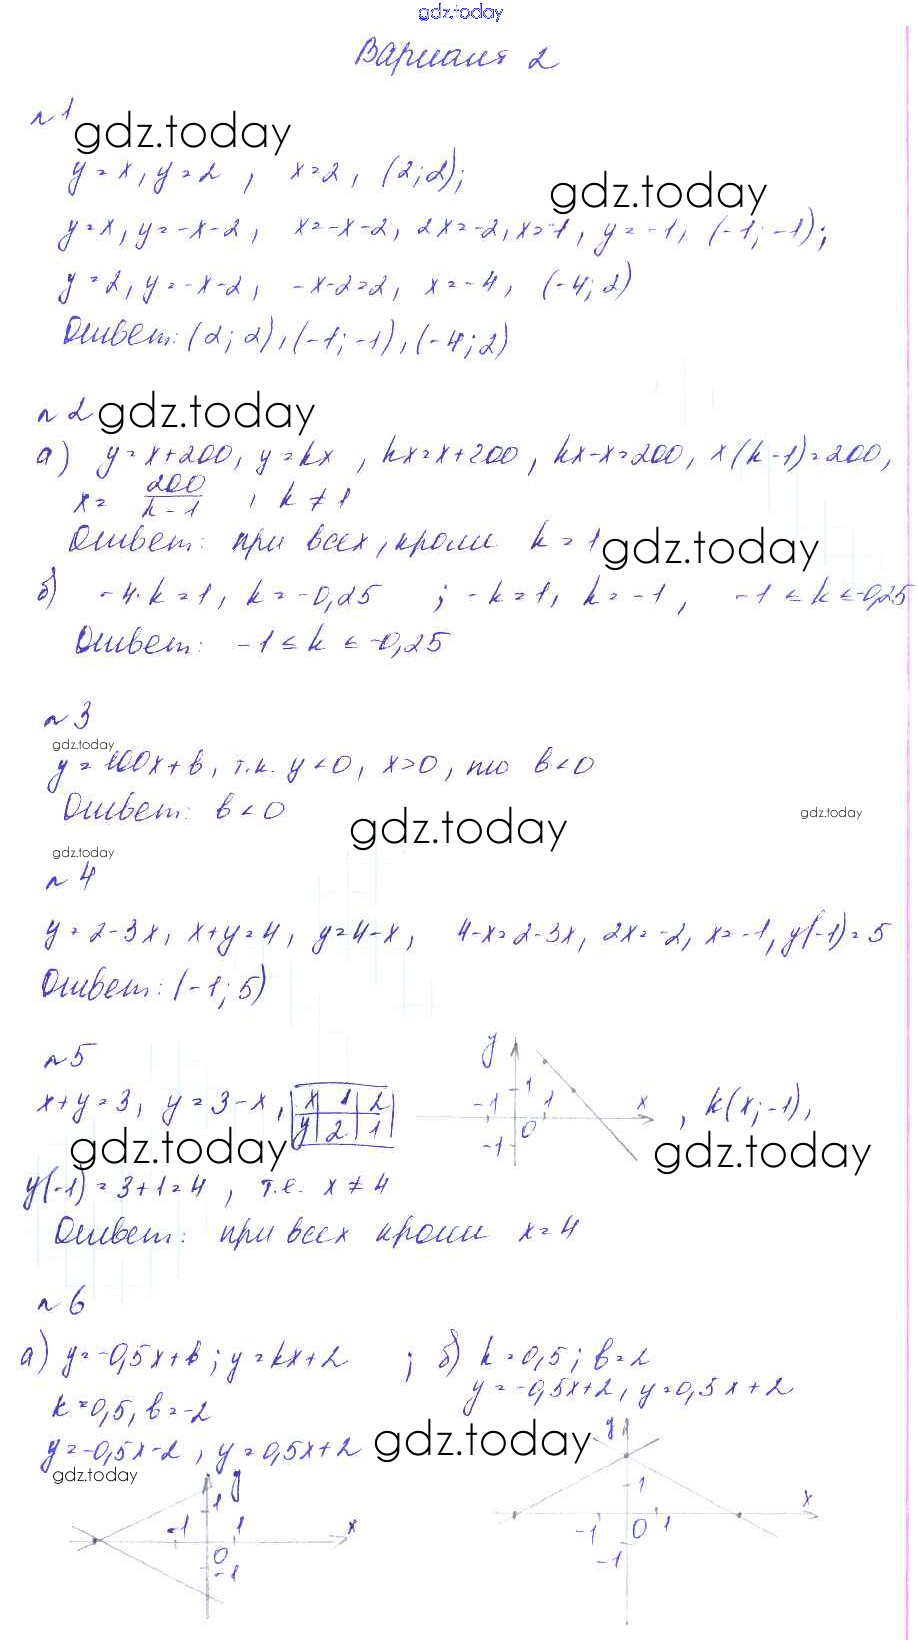 gdz.today
Вариант 2
№1 gdz.today
y=x, y=2, x=2, (2;2);
gdz.today
y=x, y=-x-2, x=-x-2, 2x=-2, x=-1, y=-1, (-1;-1);
y=2, y=-x-2, -x-2=2, x=-4, (-4;2)
Ответ: (2;2), (-1;-1), (-4;2)
№2 gdz.today
а) y=x+200, y=kx, kx=x+200, kx-x=200, x(k-1)=200,
x= 200/k-1, k≠1
Ответ: при всех, кроме k=1 gdz.today
б) -4·k=1, k=-0,25; -k=1, k=-1, -1≤k≤-0,25
Ответ: -1≤k≤-0,25
№3
gdz.today
y=100x+b, т.к. y<0, x>0, то b<0
Ответ: b<0
gdz.today
gdz.today
gdz.today
№4
y=2-3x, x+y=4, y=4-x, 4-x=2-3x, 2x=-2, x=-1, y(-1)=5
Ответ: (-1;5)
№5
x+y=3, y=3-x, x 1 2
y 2 1
y 1 -1 1 x -1 0
, k(x;-1),
gdz.today
gdz.today
y(-1)=3+1=4, т.е. x≠4
Ответ: при всех кроме x=4
№6
а) y=-0,5x+b; y=kx+2; б) k=0,5; b=2
y=-0,5x+2, y=0,5x+2
k=0,5, b=-2
y=-0,5x-2, y=0,5x+2 gdz.today
gdz.today
y 1 -1 1 x 0 -1
y 1 x -1 0 1 -1